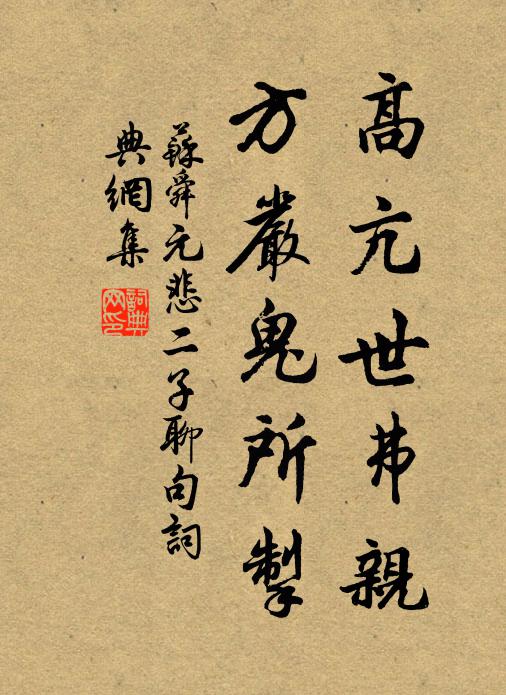 高亢世弗親
方嚴鬼所掣
蘇舜元悲二子聊句詞
典網集
詞典網印